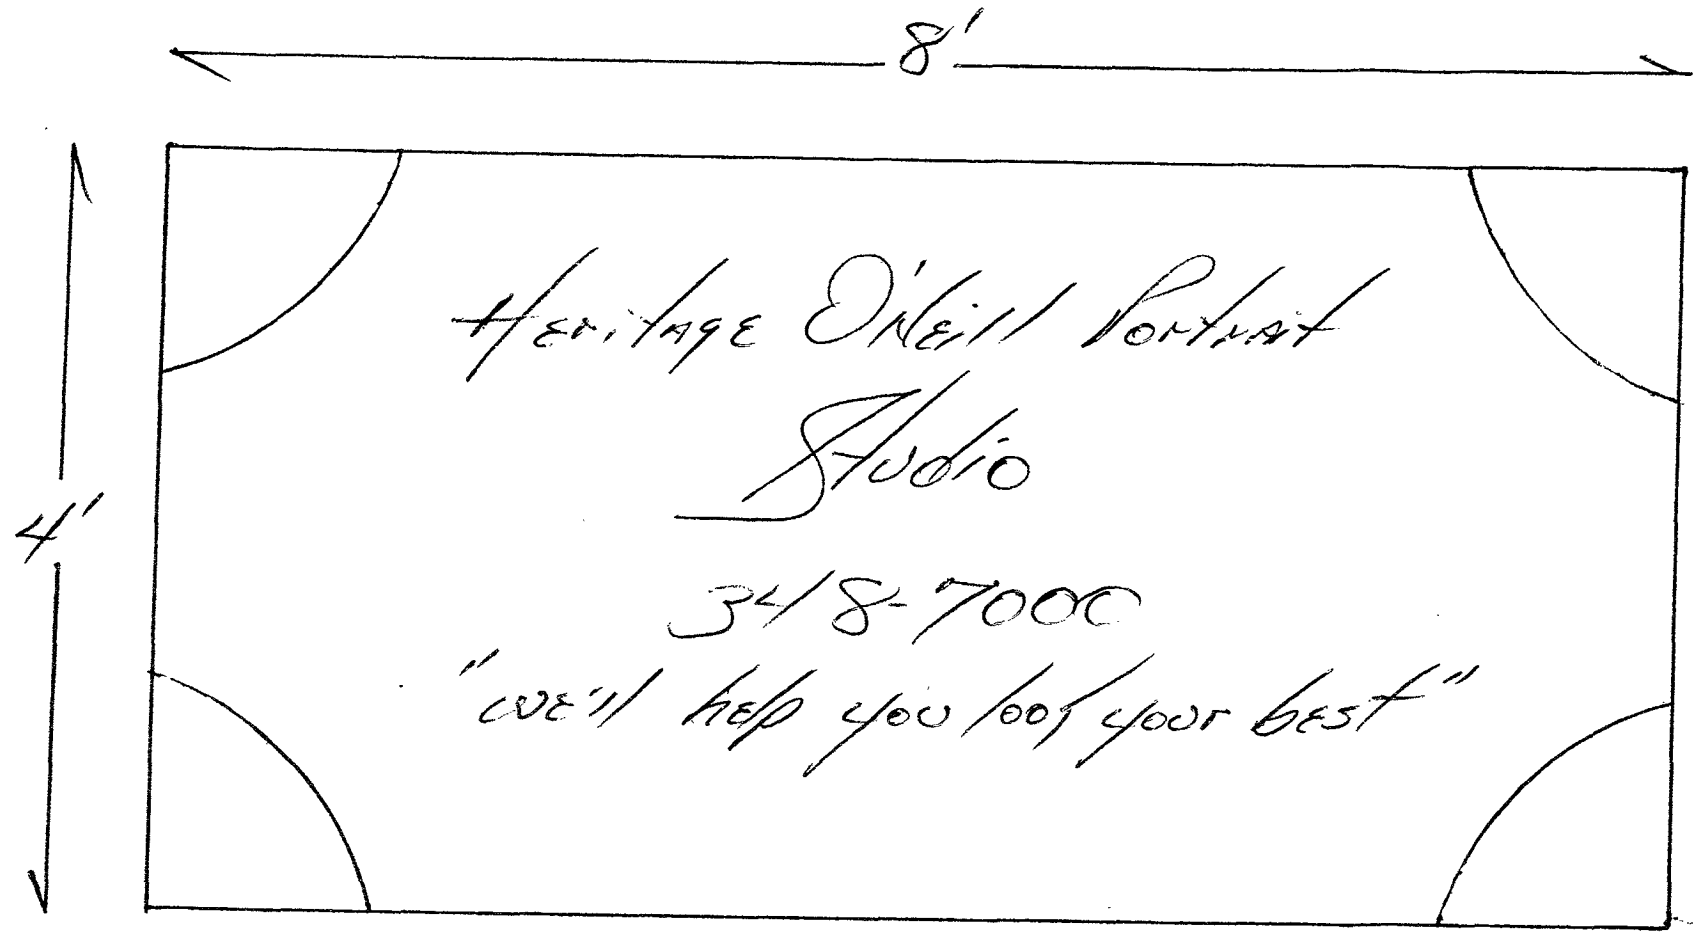 8'
4'
Heritage O'Neill Portrait
Studio
348-7000
"we'll help you look your best"